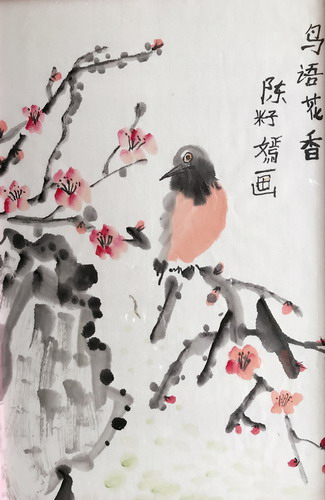 鸟语花香
陈籽嫣画